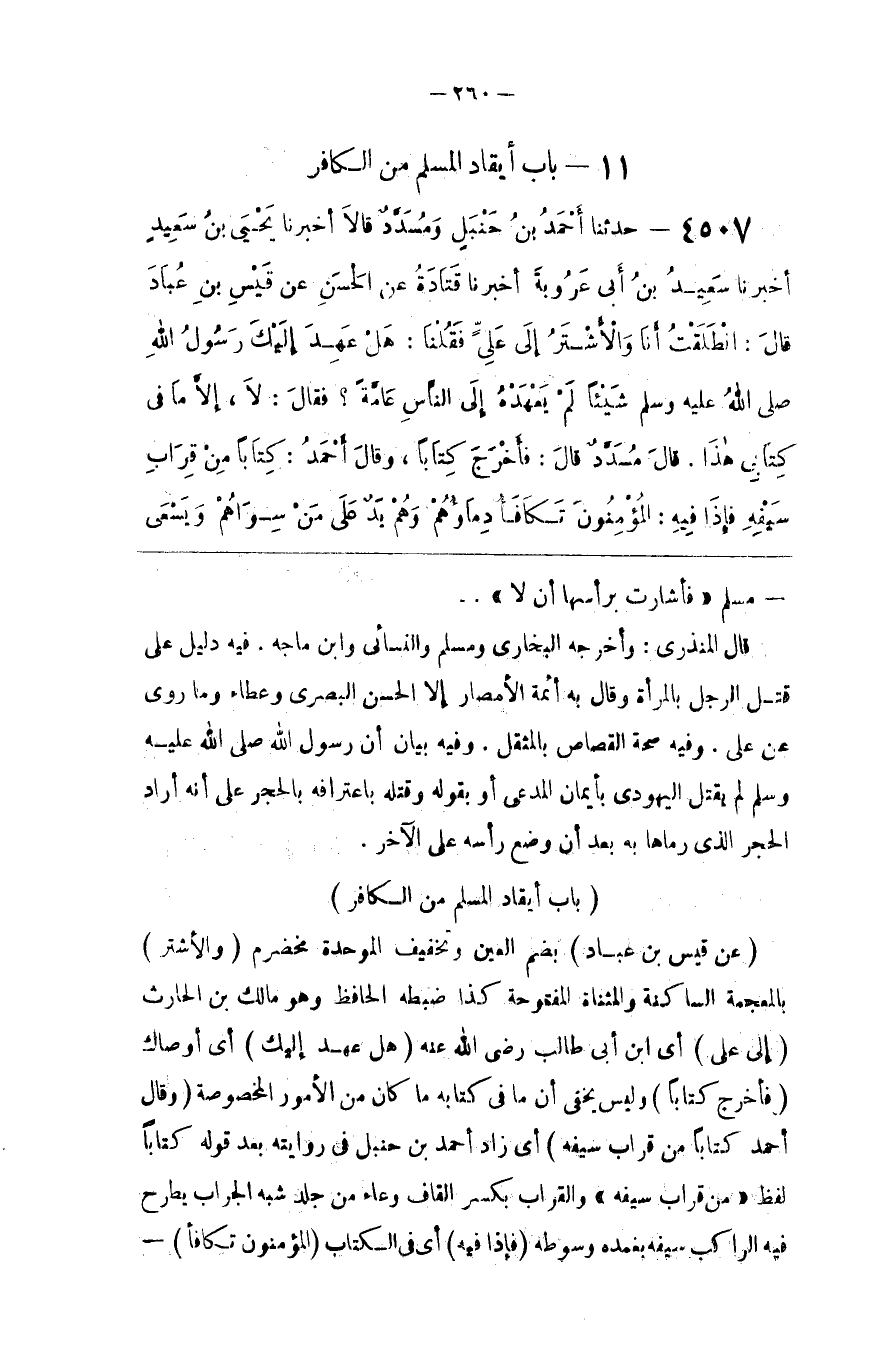 — ٢٦٠ —
١١ — باب أيقاد المسلم من الكافر
٤٥٠٧ — حدثنا أَحْمَدُ بنُ حَنْبَلٍ وَمُسَدَّدٌ قالاَ أخبرنا يَحْيَى بنُ سَعِيدٍ
أخبرنا سَعِيدُ بنُ أَبى عَرُوبَةَ أخبرنا قَتَادَةُ عن الْحَسَنِ عن قَيْسِ بنِ عُبَادَ
قالَ : انْطَلَقْتُ أنَا وَالْأَشْتَرُ إلَى عَلِيٍّ فَقُلْنَا : هَلْ عَهِدَ إِلَيْكَ رَسُولُ اللهِ
صلى اللهُ عليه وسلم شَيْئاً لَمْ يَعْهَدْهُ إلَى الناَّسِ عَامَّةً ؟ فقالَ : لاَ ، إلاَّ مَا فى
كِتَابِي هٰذَا . قالَ مُسَدَّدٌ قالَ : فأَخْرَجَ كِتَاباً ، وقالَ أَحْمَدُ : كِتَاباً مِنْ قِرَابِ
سَيْفِهِ فإِذَا فِيهِ : المُؤْمِنُونَ تَكَافَأُ دِماَؤُهُمْ وَهُمْ يَدٌ عَلَى مَنْ سِوَاهُمْ وَيَسْعَى
— مسلم « فأشارت برأسها أن لا » . .
قال المنذرى : وأخرجه البخارى ومسلم والنسائى وابن ماجه . فيه دليل على
قتل الرجل بالمرأة وقال به أئمة الأمصار إلا الحسن البصرى وعطاء وما روى
عن على . وفيه صحة القصاص بالمثقل . وفيه بيان أن رسول الله صلى الله عليه
وسلم لم يقتل اليهودى بأيمان المدعى أو بقوله وقتله باعترافه بالحجر على أنه أراد
الحجر الذى رماها به بعد أن وضع رأسه على الآخر .
( باب أيقاد المسلم من الكافر )
( عن قيس بن عباد ) بضم العين وتخفيف الموحدة مخضرم ( والأشتر )
بالمعجمة الساكنة والمثناة المفتوحة كذا ضبطه الحافظ وهو مالك بن الحارث
( إلى على ) أى ابن أبى طالب رضى الله عنه ( هل عهد إليك ) أى أوصاك
( فأخرج كتاباً ) وليس يخفى أن ما فى كتابه ما كان من الأمور المخصوصة ( وقال
أحمد كتاباً من قراب سيفه ) أى زاد أحمد بن حنبل فى روايته بعد قوله كتاباً
لفظ « من قراب سيفه » والقراب بكسر القاف وعاء من جلد شبه الجراب يطرح
فيه الراكب سيفه بغمده وسوطه ( فإذا فيه ) أى فى الكتاب ( المؤمنون تكافأ ) —